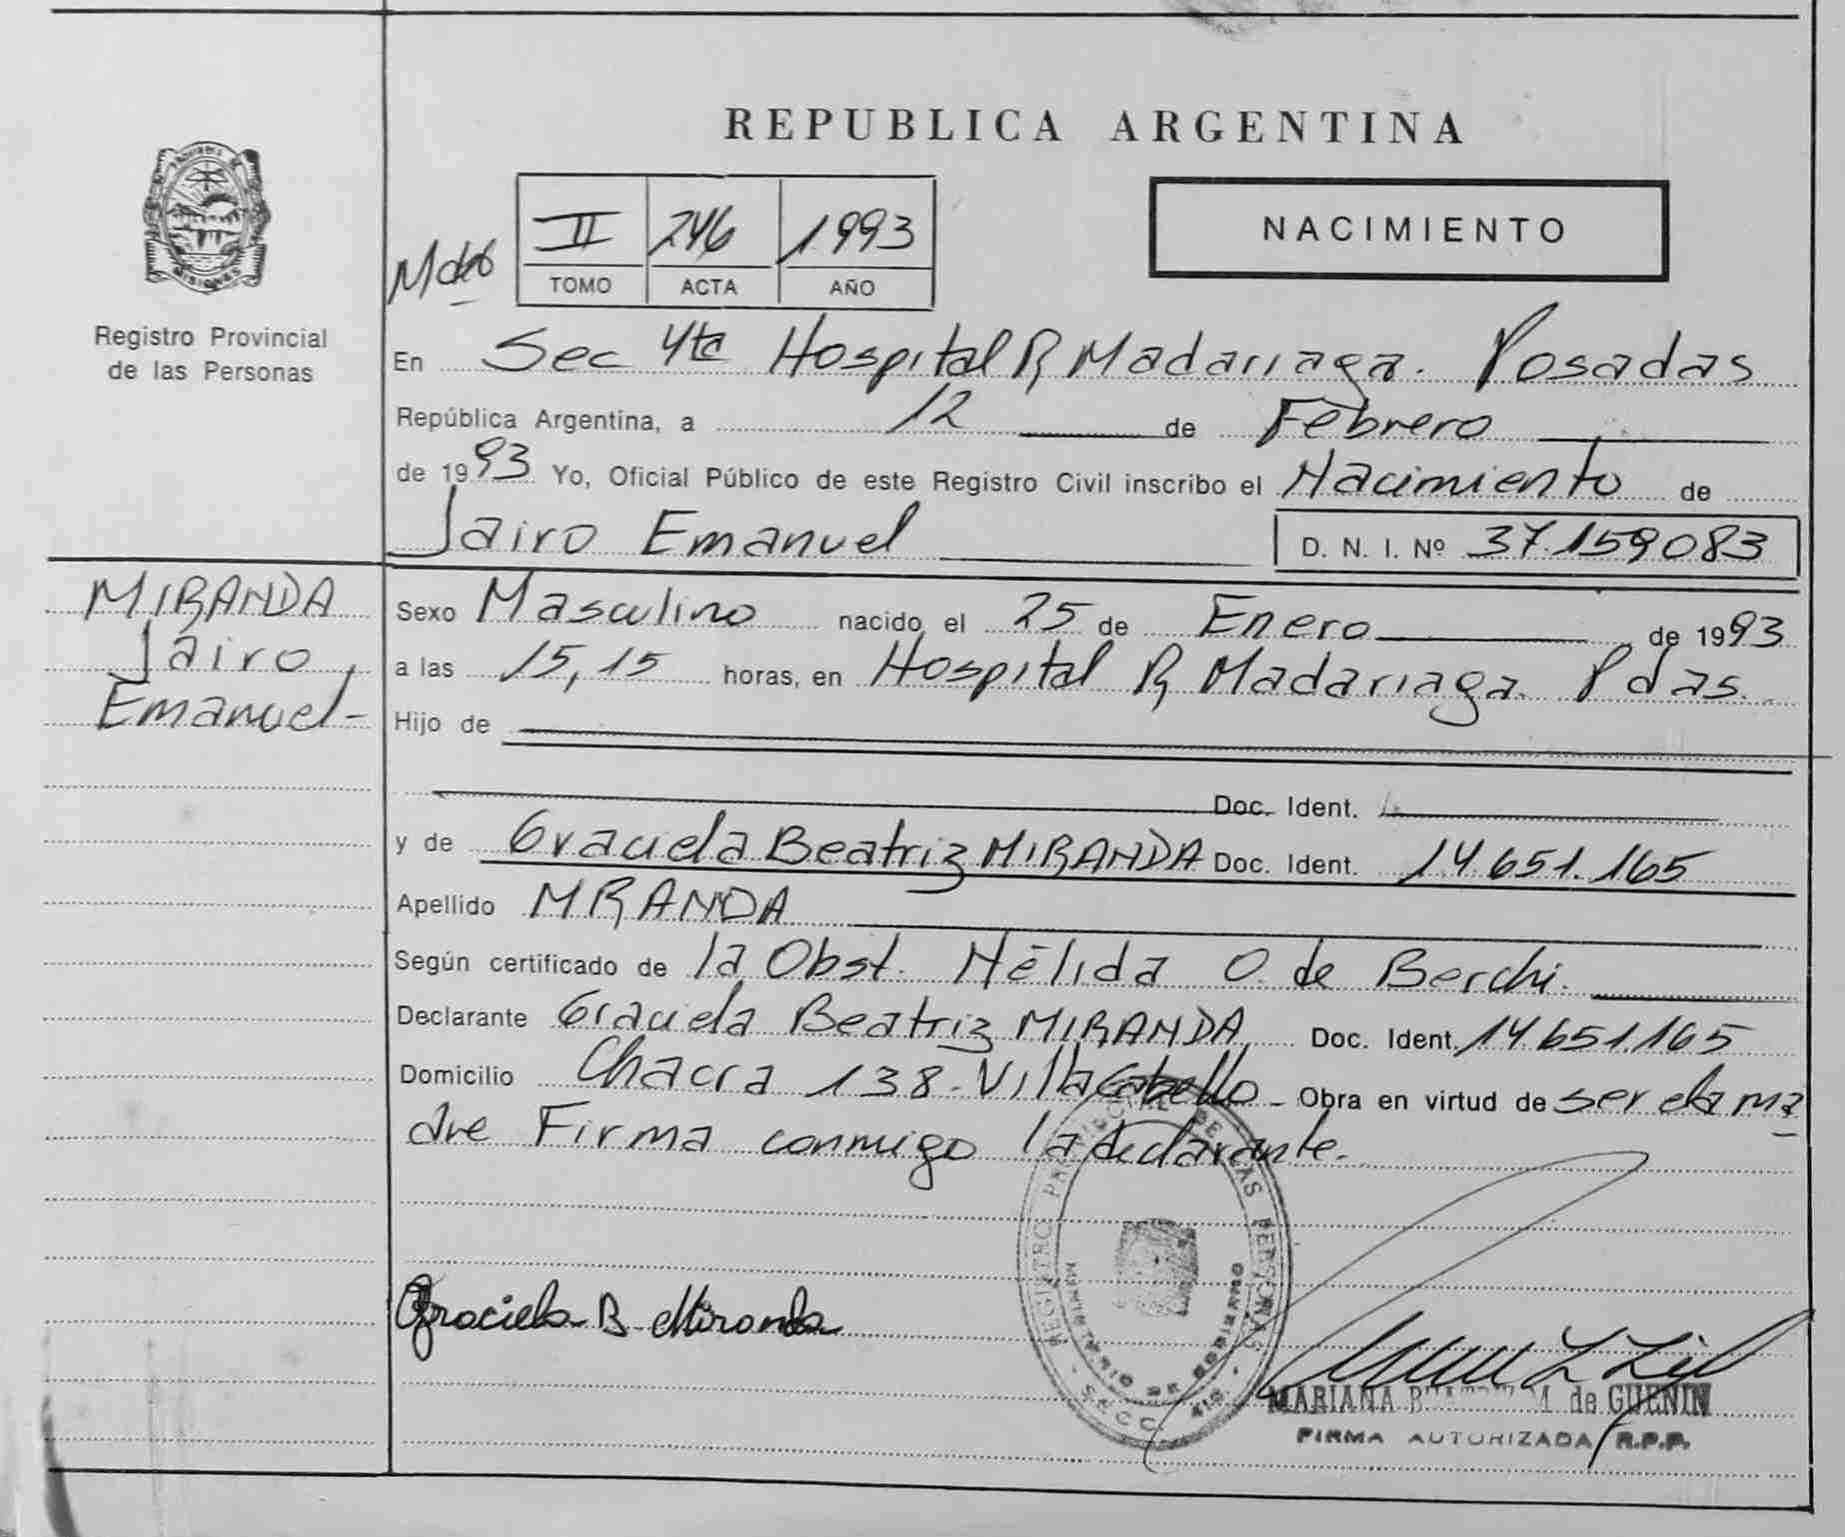 REPUBLICA ARGENTINA
II 246 1993
TOMO ACTA AÑO
NACIMIENTO
Registro Provincial
de las Personas
En Sec 4ta Hospital R Madariaga. Posadas
República Argentina, a 12 de Febrero
de 1993 Yo, Oficial Público de este Registro Civil inscribo el Nacimiento de
Jairo Emanuel D. N. I. Nº 37.159083
MIRANDA
Jairo,
Emanuel-
Sexo Masculino nacido el 25 de Enero de 1993
a las 15,15 horas, en Hospital R Madariaga. Pdas.
Hijo de
Doc. Ident.
y de Graciela Beatriz MIRANDA Doc. Ident. 14.651.165
Apellido MIRANDA
Según certificado de la Obst. Nélida O. de Berchi.
Declarante Graciela Beatriz MIRANDA Doc. Ident. 14.651.165
Domicilio Chacra 138-Villa Cabello- Obra en virtud de ser ela ma
dre Firma conmigo la declarante.
REGISTRO PROVINCIAL DE LAS PERSONAS
MINISTERIO DE GOBIERNO
Graciela B Miranda
MARIANA de GUENIN
FIRMA AUTORIZADA R.P.P.